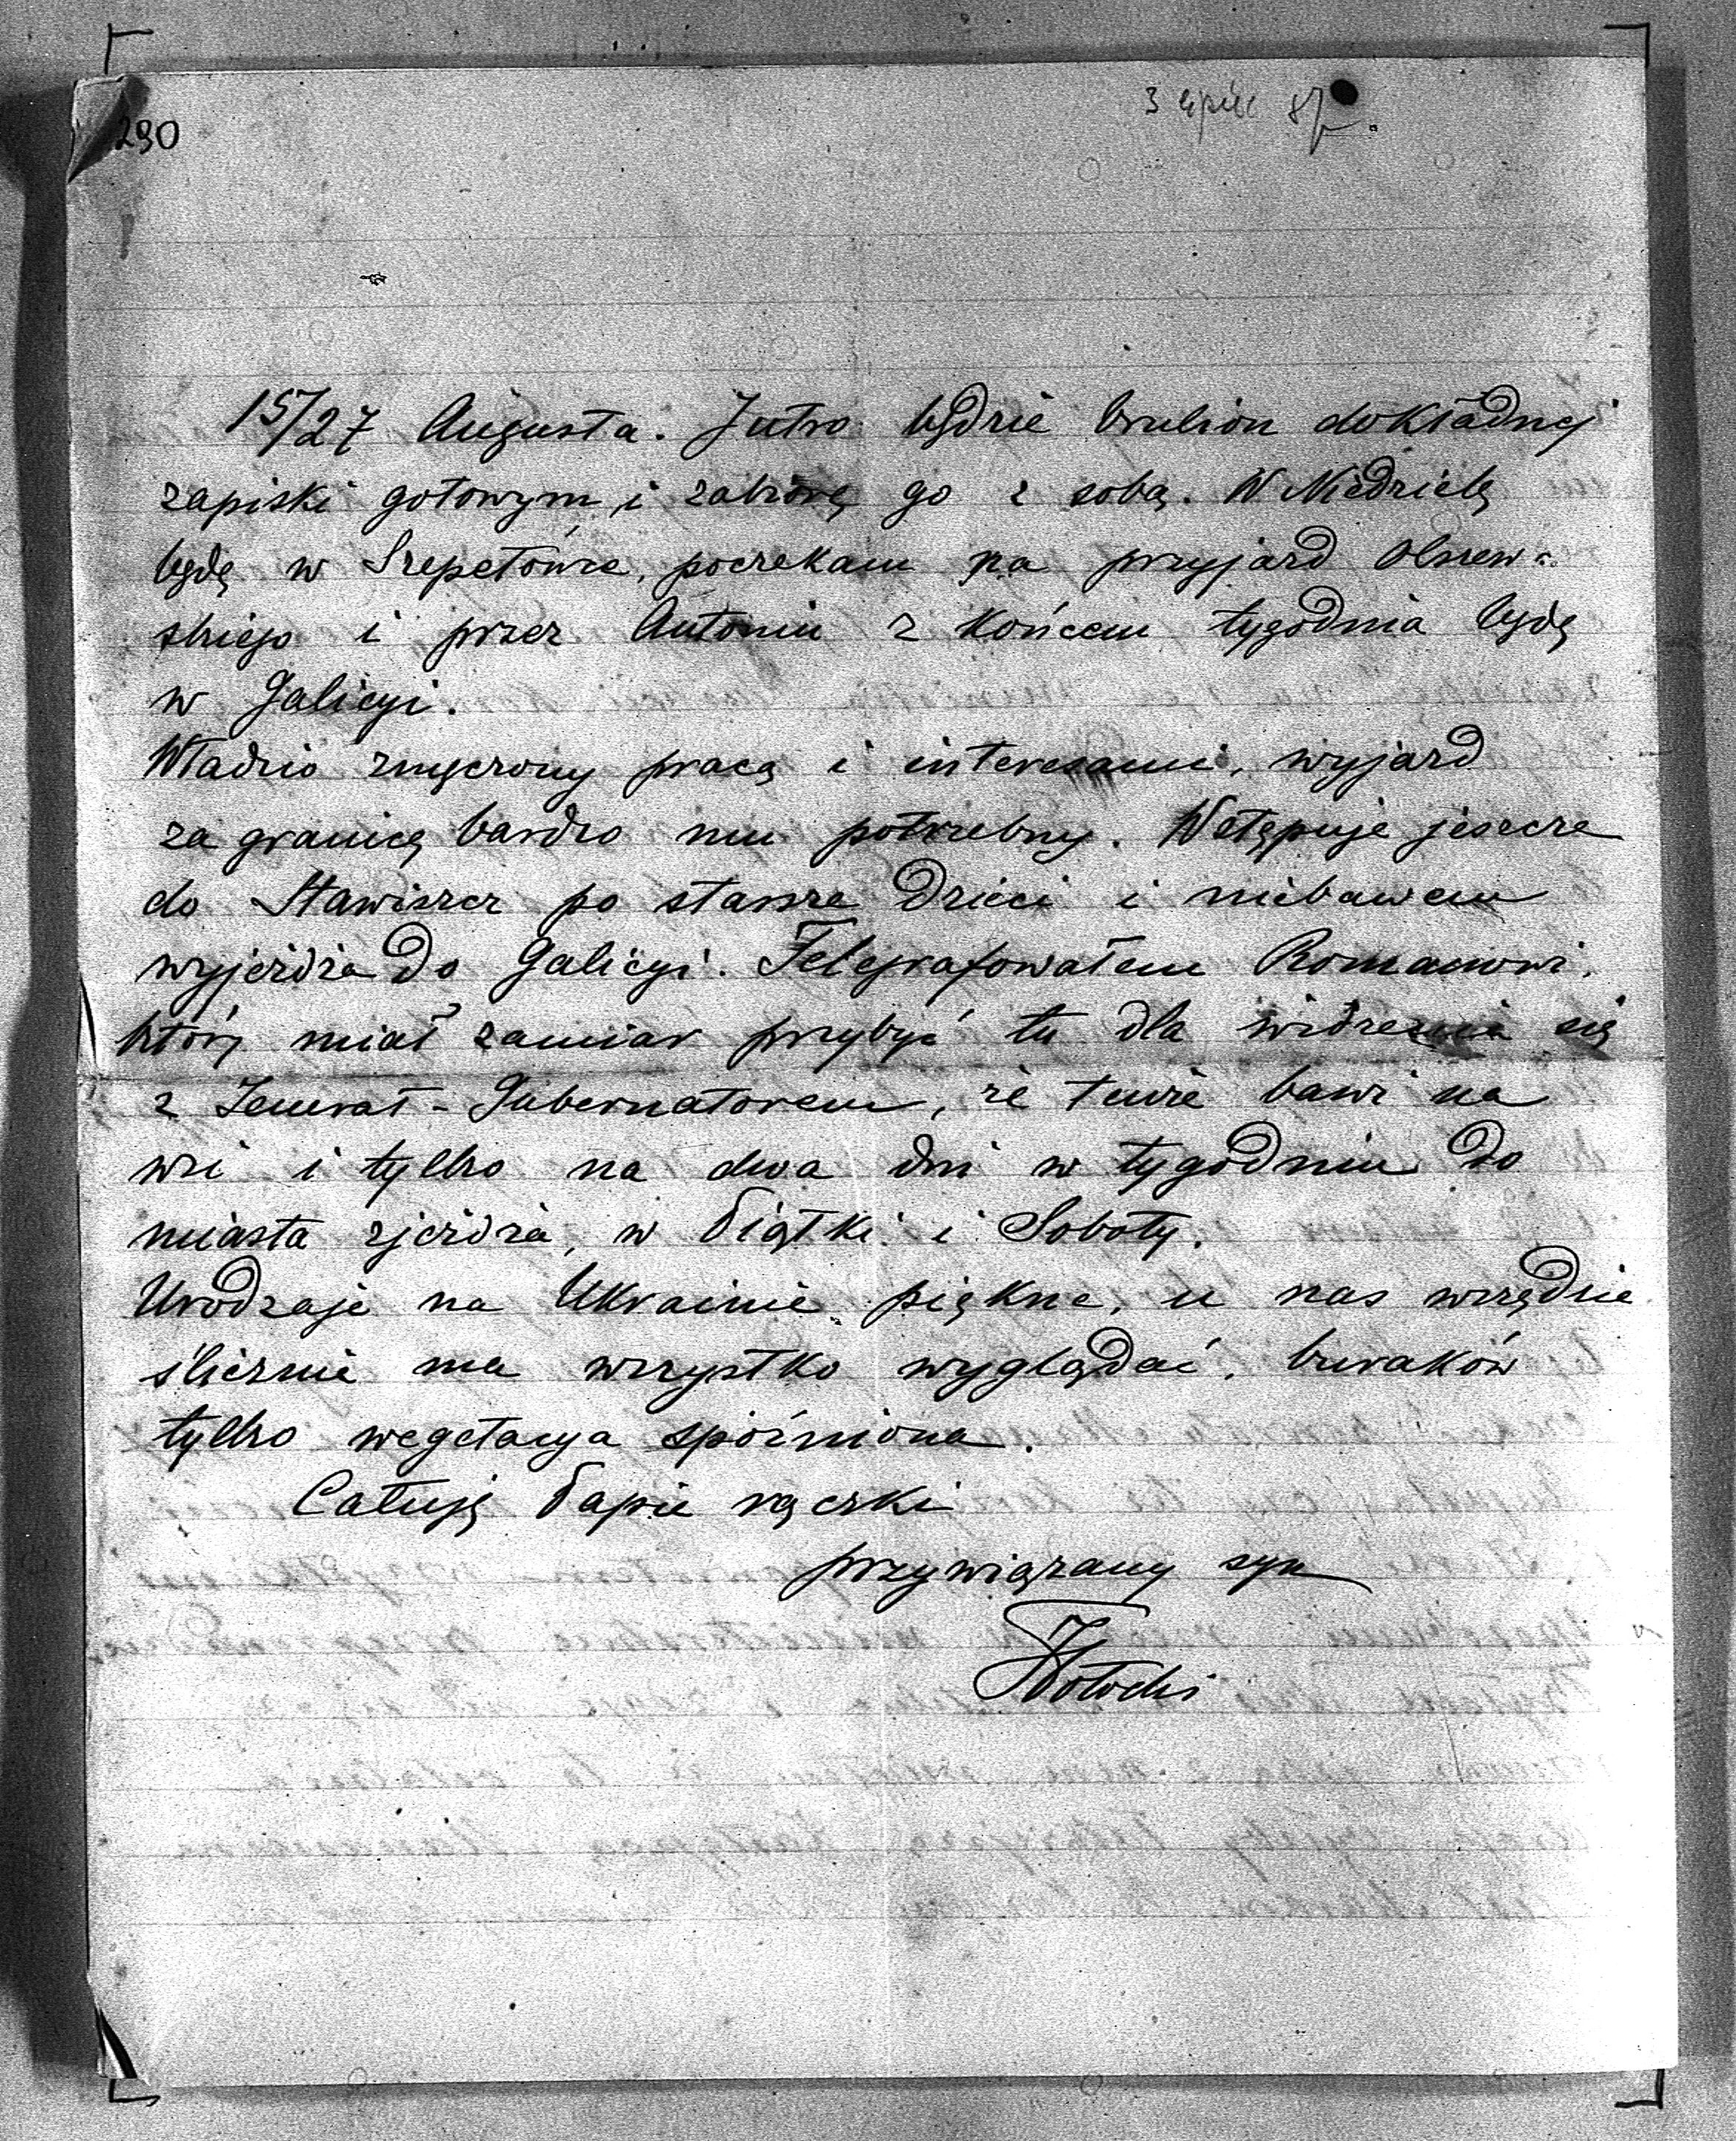 3 lipiec 87
290
15/27 Augusta. Jutro będzie brulion dokładnej
zapiski gotowym, i zabiorę go z sobą. W Niedzielę
będę w Szepetówce, poczekam na przyjazd Olszew-
skiego i przez Antonin z końcem tygodnia będę
w Galicyi.
Władzio zmęczony pracą i interesami, wyjazd
za granicę bardzo mu potrzebny. Wstępuje jeszcze
do Stawiszcz po starsze dzieci i niebawem
wyjeżdża do Galicyi. Telegrafowałem Romanowi,
który miał zamiar przybyć tu dla widzenia się
z Jenerał-Gubernatorem, że tenże bawi na
wsi i tylko na dwa dni w tygodniu do
miasta zjeżdża, w Piątki i Soboty.
Urodzaje na Ukrainie piękne, u nas wszędzie
ślicznie ma wszystko wyglądać, buraków
tylko wegetacya spóźniona.
Całuję Papie rączki
przywiązany syn
JPotocki